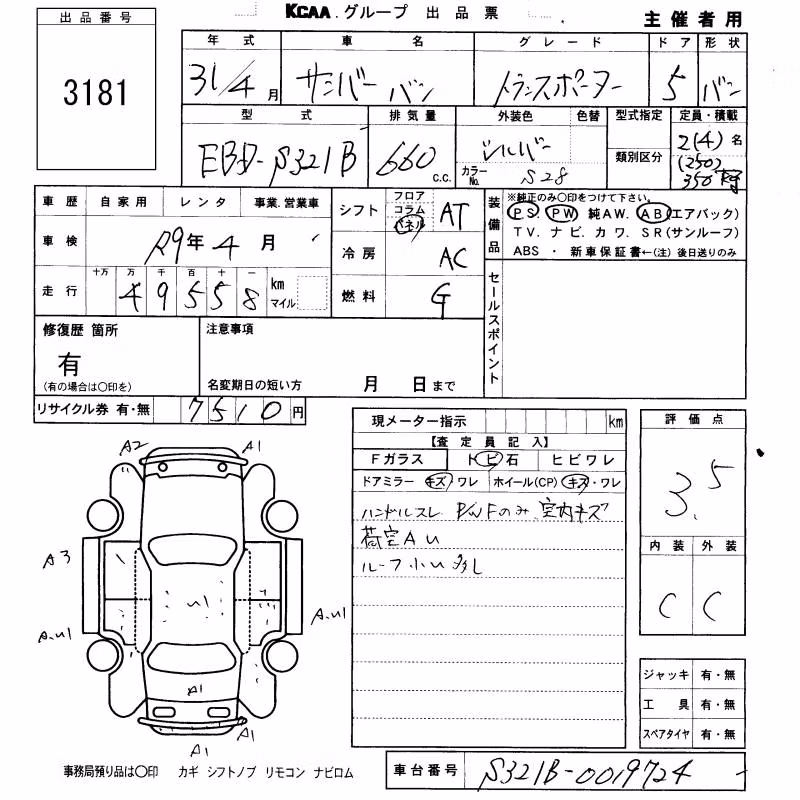 KCAA グループ 出品票
主催者用
出品番号
3181
年式 車名 グレード ドア 形状
31/4月 サンバー バン トランスポーター 5 バン
型式 排気量 外装色 色替 型式指定 定員・積載
EBD-S321B 660 c.c. シルバー カラーNo. S28 類別区分 2(4)名
(250)
350 kg
車歴 自家用 レンタ 事業.営業車
車検 R9年4月
走行 十万 万 千 百 十 一 km マイル
49558
シフト フロア コラム パネル AT
冷房 AC
燃料 G
装備品 ※純正のみ〇印をつけて下さい。
PS PW 純AW. AB(エアバック)
TV. ナビ. カワ. SR(サンルーフ)
ABS ・ 新車保証書←(注) 後日送りのみ
セールスポイント
修復歴 箇所
有
(有の場合は〇印を)
注意事項
名変期日の短い方 月 日まで
リサイクル券 有・無 7510円
現メーター指示 km
【査定員記入】
Fガラス トビ石 ヒビワレ
ドアミラー キズ・ワレ ホイール(CP) キズ・ワレ
ハンドルスレ P/W Fのみ 室内キズ
荷室AU
ルーフ小U多し
評価点
3.5
内装 外装
C C
A2 A1
A3
A.U1 U1 A.U1
A1
A1 A1
ジャッキ 有・無
工具 有・無
スペアタイヤ 有・無
事務局預り品は〇印 カギ シフトノブ リモコン ナビロム
車台番号 S321B-0019724